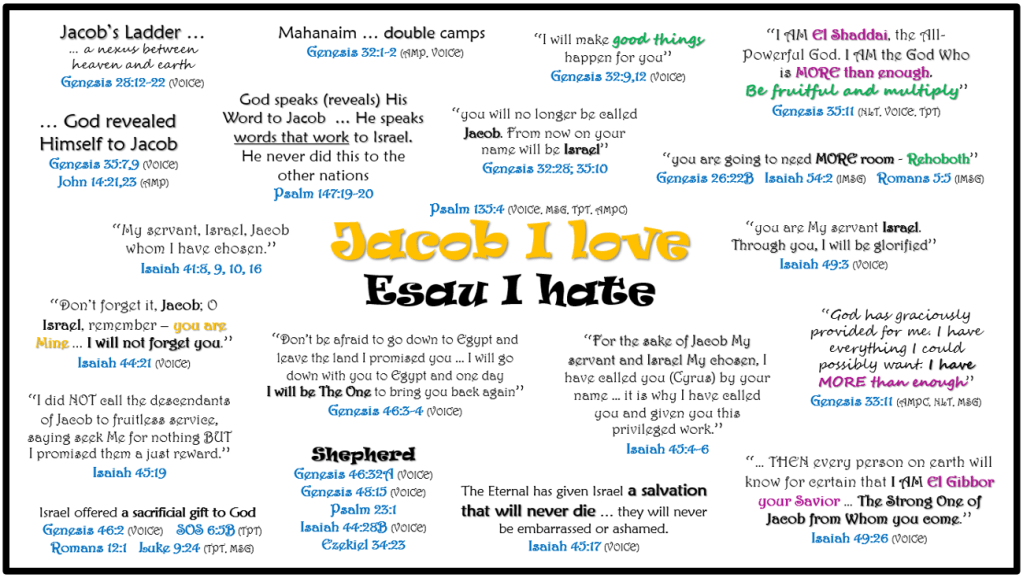 Jacob's Ladder …
… a nexus between
heaven and earth
Genesis 28:12-22 (VOICE)
Mahanaim … double camps
Genesis 32:1-2 (AMP, VOICE)
"I will make good things
happen for you"
Genesis 32:9,12 (VOICE)
"I AM El Shaddai, the All-
Powerful God. I AM the God Who
is MORE than enough.
Be fruitful and multiply"
Genesis 35:11 (NLT, VOICE, TPT)
… God revealed
Himself to Jacob
Genesis 35:7,9 (VOICE)
John 14:21,23 (AMP)
God speaks (reveals) His
Word to Jacob … He speaks
words that work to Israel.
He never did this to the
other nations
Psalm 147:19-20
"you will no longer be called
Jacob. From now on your
name will be Israel"
Genesis 32:28; 35:10
"you are going to need MORE room - Rehoboth"
Genesis 26:22B Isaiah 54:2 (MSG) Romans 5:5 (MSG)
Psalm 135:4 (VOICE, MSG, TPT, AMPC)
Jacob I love
Esau I hate
"My servant, Israel, Jacob
whom I have chosen."
Isaiah 41:8, 9, 10, 16
"you are My servant Israel.
Through you, I will be glorified"
Isaiah 49:3 (VOICE)
"Don't forget it, Jacob; O
Israel, remember – you are
Mine … I will not forget you."
Isaiah 44:21 (VOICE)
"Don't be afraid to go down to Egypt and
leave the land I promised you … I will go
down with you to Egypt and one day
I will be The One to bring you back again"
Genesis 46:3-4 (VOICE)
"For the sake of Jacob My
servant and Israel My chosen, I
have called you (Cyrus) by your
name … it is why I have called
you and given you this
privileged work."
Isaiah 45:4-6
"God has graciously
provided for me. I have
everything I could
possibly want. I have
MORE than enough"
Genesis 33:11 (AMPC, NLT, MSG)
"I did NOT call the descendants
of Jacob to fruitless service,
saying seek Me for nothing BUT
I promised them a just reward."
Isaiah 45:19
Shepherd
Genesis 46:32A (VOICE)
Genesis 48:15 (VOICE)
Psalm 23:1
Isaiah 44:28B (VOICE)
Ezekiel 34:23
Israel offered a sacrificial gift to God
Genesis 46:2 (VOICE) SOS 6:5B (TPT)
Romans 12:1 Luke 9:24 (TPT, MSG)
The Eternal has given Israel a salvation
that will never die … they will never
be embarrassed or ashamed.
Isaiah 45:17 (VOICE)
"… THEN every person on earth will
know for certain that I AM El Gibbor
your Savior … The Strong One of
Jacob from Whom you come."
Isaiah 49:26 (VOICE)